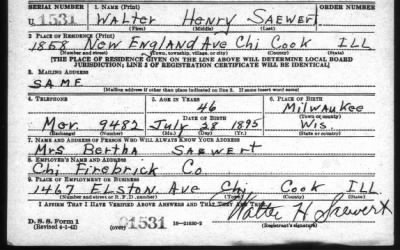 SERIAL NUMBER 1. NAME (Print) ORDER NUMBER
U 1531 WALTER Henry SAEWERT
(First) (Middle) (Last)
2. PLACE OF RESIDENCE (Print)
1858 New England Ave Chi Cook ILL
(Number and street) (Town, township, village, or city) (County) (State)
[THE PLACE OF RESIDENCE GIVEN ON THE LINE ABOVE WILL DETERMINE LOCAL BOARD
JURISDICTION; LINE 2 OF REGISTRATION CERTIFICATE WILL BE IDENTICAL]
3. MAILING ADDRESS
SAME
[Mailing address if other than place indicated on line 2. If same insert word same]
4. TELEPHONE 5. AGE IN YEARS 6. PLACE OF BIRTH
46 Milwaukee
DATE OF BIRTH (Town or county)
Mer. 9482 July 28 1895 Wis.
(Exchange) (Number) (Mo.) (Day) (Yr.) (State or country)
7. NAME AND ADDRESS OF PERSON WHO WILL ALWAYS KNOW YOUR ADDRESS
Mrs Bertha SAEWERT
8. EMPLOYER'S NAME AND ADDRESS
Chi Firebrick Co
9. PLACE OF EMPLOYMENT OR BUSINESS
1467 ELSTON Ave Chi Cook ILL.
(Number and street or R. F. D. number) (Town) (County) (State)
I AFFIRM THAT I HAVE VERIFIED ABOVE ANSWERS AND THAT THEY ARE TRUE.
D. S. S. Form 1
(Revised 4-1-42) (over) 1531 16—21630-2 Walter H Saewert
(Registrant's signature)